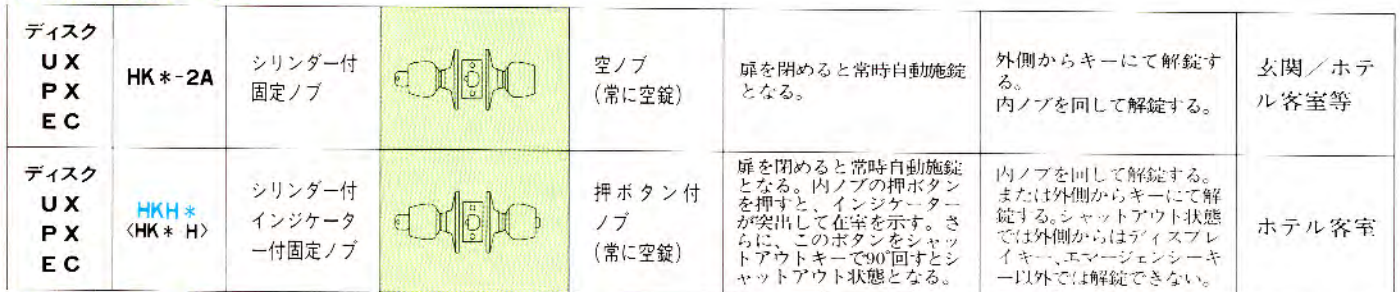 ディスク
UX
PX
EC
HK*-2A
シリンダー付
固定ノブ
空ノブ
(常に空錠)
扉を閉めると常時自動施錠
となる。
外側からキーにて解錠す
る。
内ノブを回して解錠する。
玄関/ホテ
ル客室等
ディスク
UX
PX
EC
HKH*
〈HK*-H〉
シリンダー付
インジケータ
ー付固定ノブ
押ボタン付
ノブ
(常に空錠)
扉を閉めると常時自動施錠
となる。内ノブの押ボタン
を押すと、インジケーター
が突出して在室を示す。さ
らに、このボタンをシャッ
トアウトキーで90°回すとシ
ャットアウト状態となる。
内ノブを回して解錠する。
または外側からキーにて解
錠する。シャットアウト状態
では外側からはディスプレ
イキー、エマージェンシーキ
ー以外では解錠できない。
ホテル客室